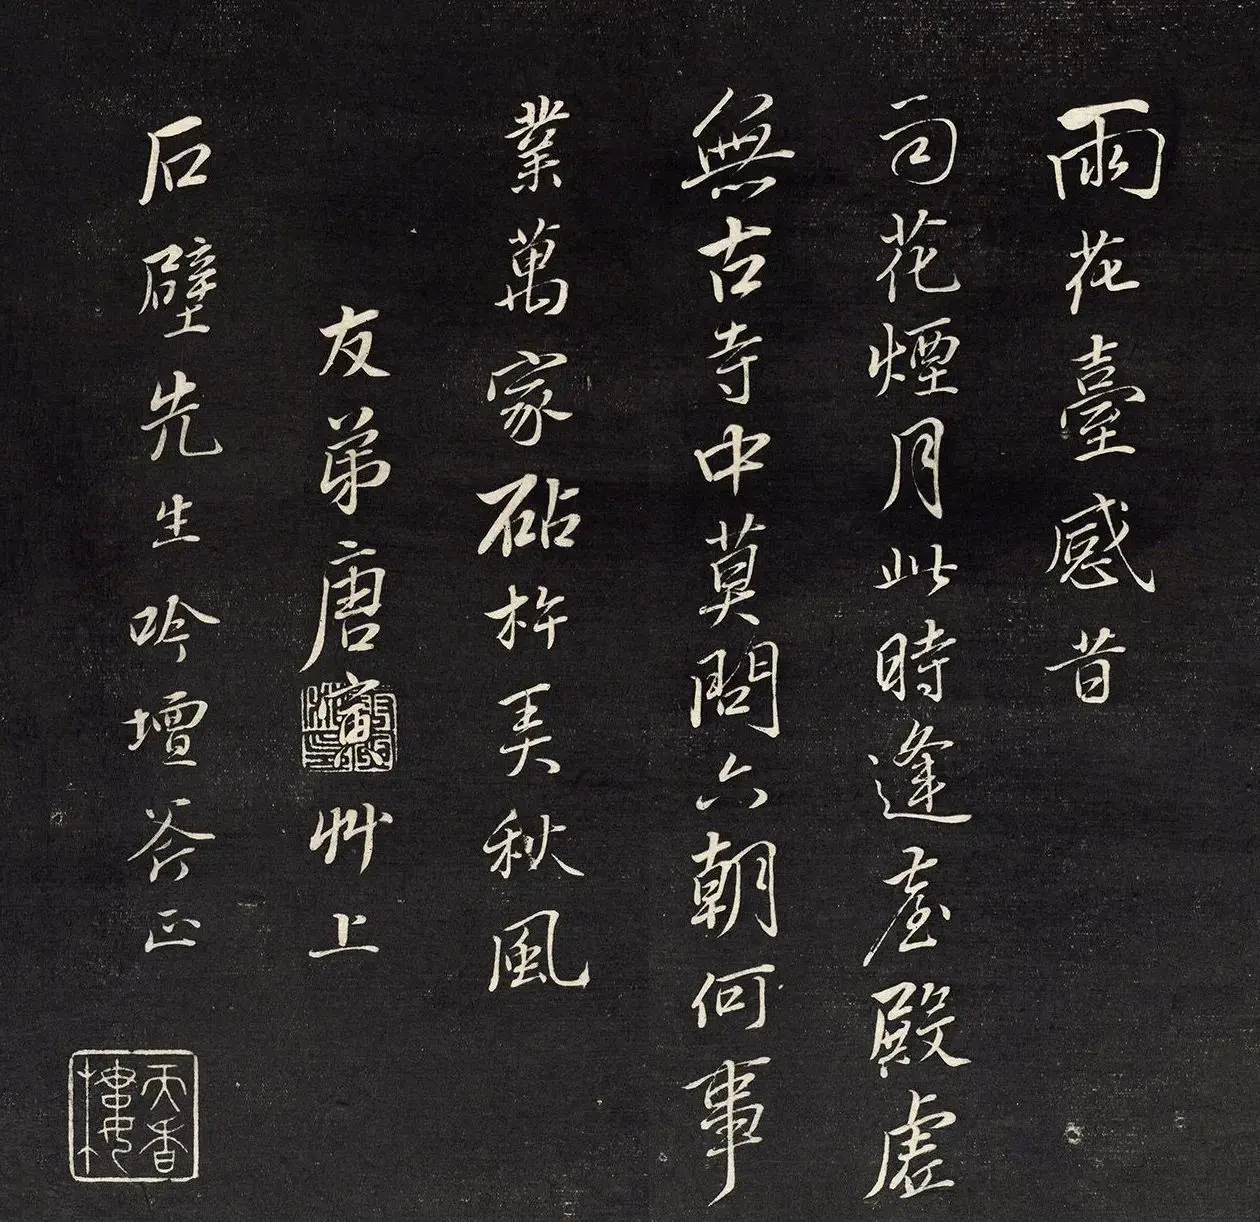 雨花臺感昔
司花煙月此時逢臺殿虛
無古寺中莫問六朝何事
業萬家砧杵美秋風
友弟唐寅艸上
石壁先生吟壇斧正
天香樓